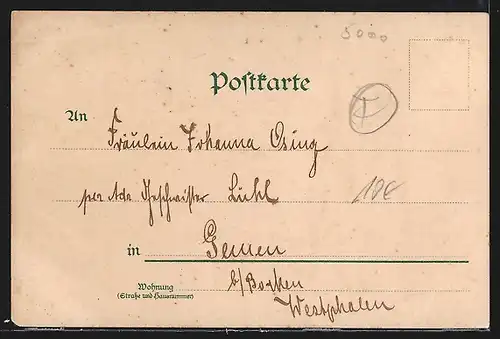 5000
Postkarte
An Fräulein Johanna Osing
per Adr Geschwister Lühl
18€
in Gemen
b/Borken
Wohnung
(Straße und Hausnummer)
Westphalen